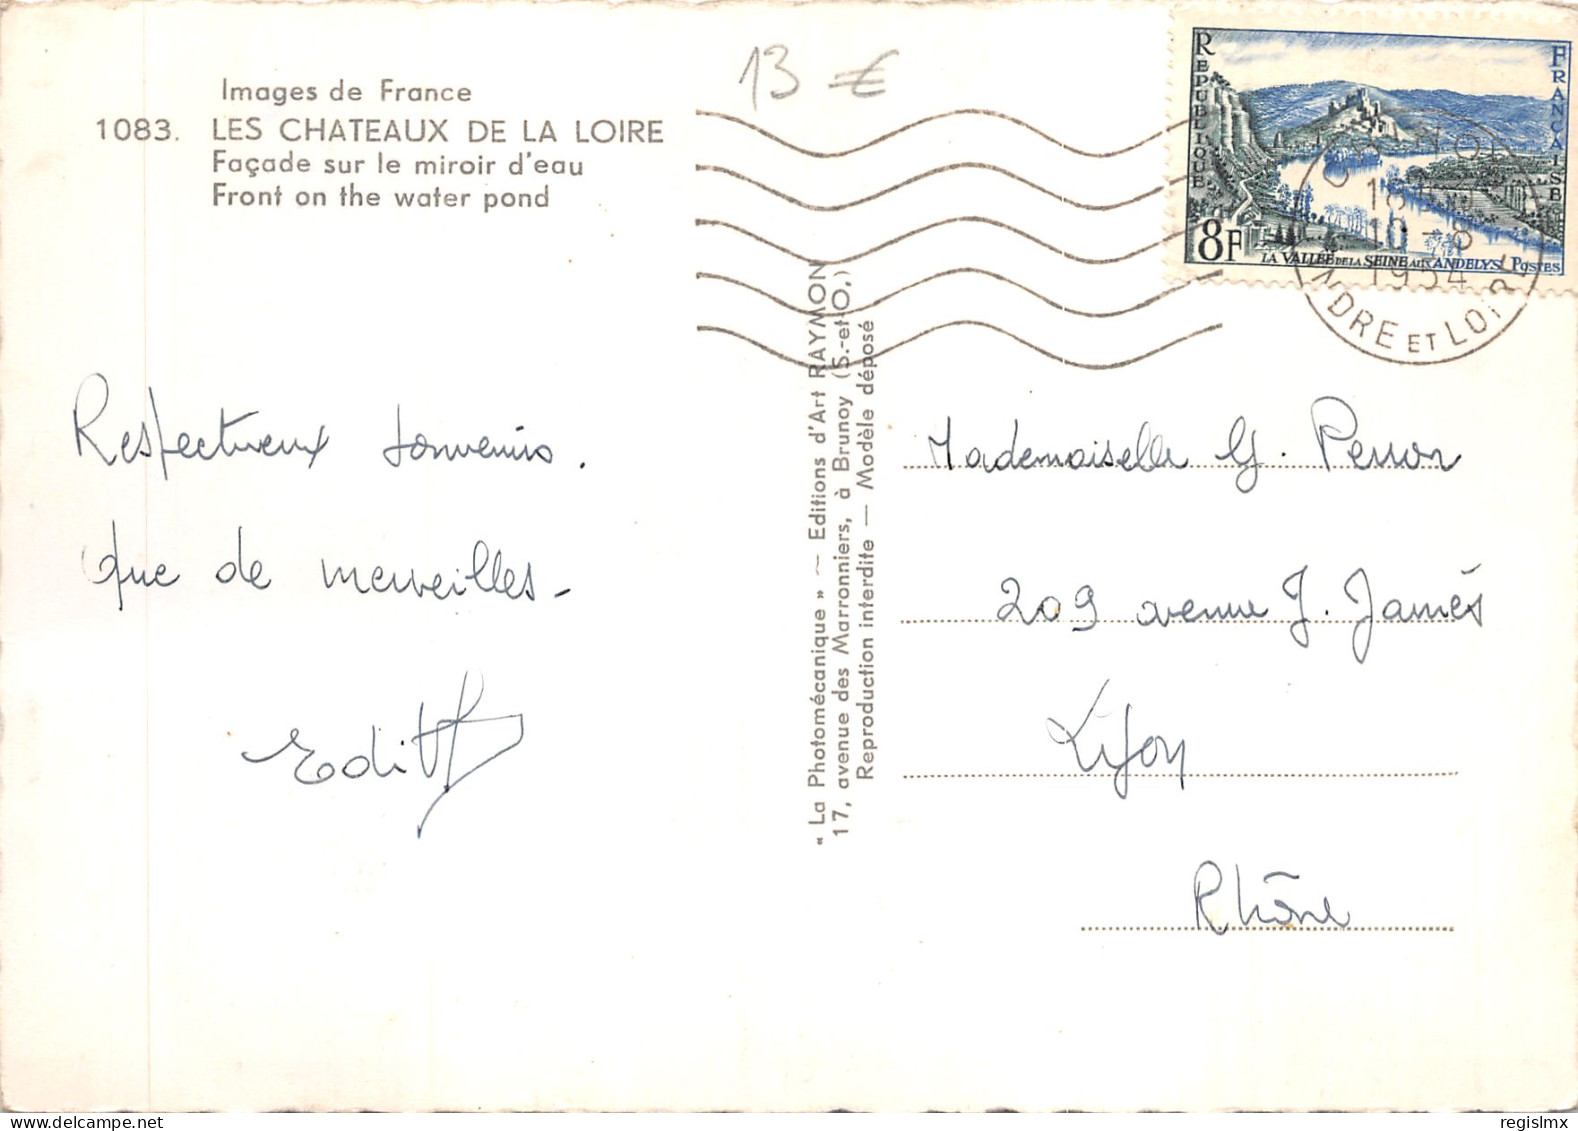 13 €
Images de France
1083. LES CHATEAUX DE LA LOIRE
Façade sur le miroir d'eau
Front on the water pond
REPUBLIQUE FRANCAISE
8F
LA VALLEE DE LA SEINE AUX ANDELYS POSTES
CHINON
18H
10-8
1954
INDRE ET LOIRE
Respectueux souvenirs.
Que de merveilles-
Edith
« La Photomécanique » — Editions d'Art RAYMON
17, avenue des Marronniers, à Brunoy (S.-et-O.)
Reproduction interdite — Modèle déposé
Mademoiselle G. Perron
209 avenue J. Jaurès
Lyon
Rhône
regislmx